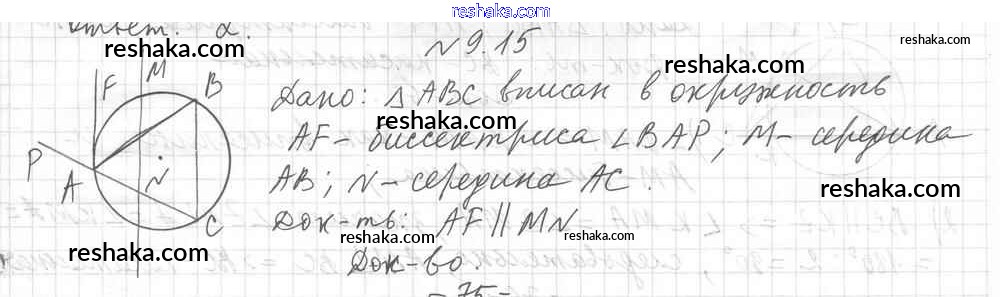 reshaka.com
ответ: 2.
№ 9.15
Дано: △ABC вписан в окружность
AF - биссектриса ∠BAP; M - середина
AB; N - середина AC.
Док-ть: AF || MN
Док-во:
- 75 -
F M B
P A N C
reshaka.com
reshaka.com
reshaka.com
reshaka.com
reshaka.com
reshaka.com
reshaka.com
reshaka.com